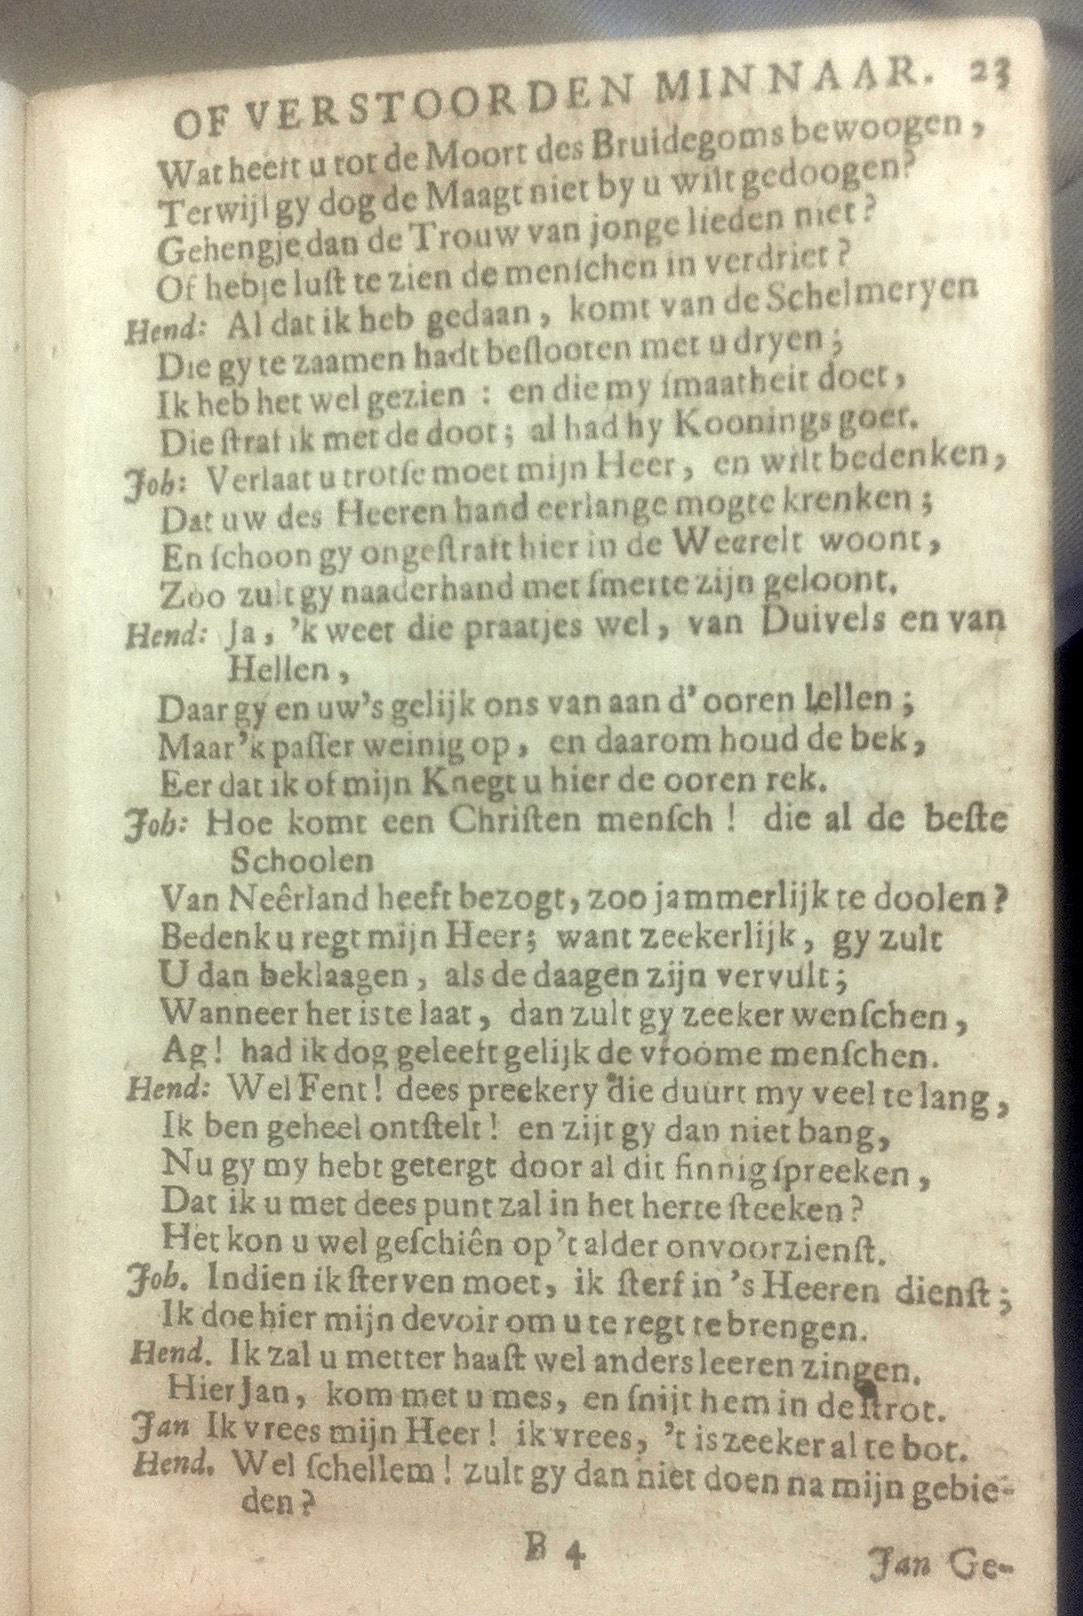 OF VERSTOORDEN MINNAAR. 23
Wat heeft u tot de Moort des Bruidegoms bewoogen,
Terwijl gy dog de Maagt niet by u wilt gedoogen?
Gehengje dan de Trouw van jonge lieden niet?
Of hebje luſt te zien de menſchen in verdriet?
Hend: Al dat ik heb gedaan, komt van de Schelmeryen
Die gy te zaamen hadt beſlooten met u dryen;
Ik heb het wel gezien : en die my ſmaatheit doet,
Die ſtraf ik met de doot; al had hy Koonings goet.
Job: Verlaat u trotſe moet mijn Heer, en wilt bedenken,
Dat uw des Heeren hand eerlange mogte krenken;
En ſchoon gy ongeſtraft hier in de Weerelt woont,
Zoo zult gy naaderhand met ſmerte zijn geloont.
Hend: Ja, 'k weet die praatjes wel, van Duivels en van
Hellen,
Daar gy en uw's gelijk ons van aan d' ooren lellen;
Maar 'k paſſer weinig op, en daarom houd de bek,
Eer dat ik of mijn Knegt u hier de ooren rek.
Job: Hoe komt een Chriſten menſch! die al de beſte
Schoolen
Van Neêrland heeft bezogt, zoo jammerlijk te doolen?
Bedenk u regt mijn Heer; want zeekerlijk, gy zult
U dan beklaagen, als de daagen zijn vervult;
Wanneer het is te laat, dan zult gy zeeker wenſchen,
Ag! had ik dog geleeft gelijk de vroome menſchen.
Hend: Wel Fent! dees preekery die duurt my veel te lang,
Ik ben geheel ontſtelt! en zijt gy dan niet bang,
Nu gy my hebt getergt door al dit finnig ſpreeken,
Dat ik u met dees punt zal in het herte ſteeken?
Het kon u wel geſchiên op 't alder onvoorzienſt.
Job. Indien ik ſterven moet, ik ſterf in 's Heeren dienſt;
Ik doe hier mijn devoir om u te regt te brengen.
Hend. Ik zal u metter haaſt wel anders leeren zingen.
Hier Jan, kom met u mes, en ſnijt hem in de ſtrot.
Jan Ik vrees mijn Heer! ik vrees, 't is zeeker al te bot.
Hend. Wel ſchellem! zult gy dan niet doen na mijn gebie-
den?
B 4
Jan Ge-